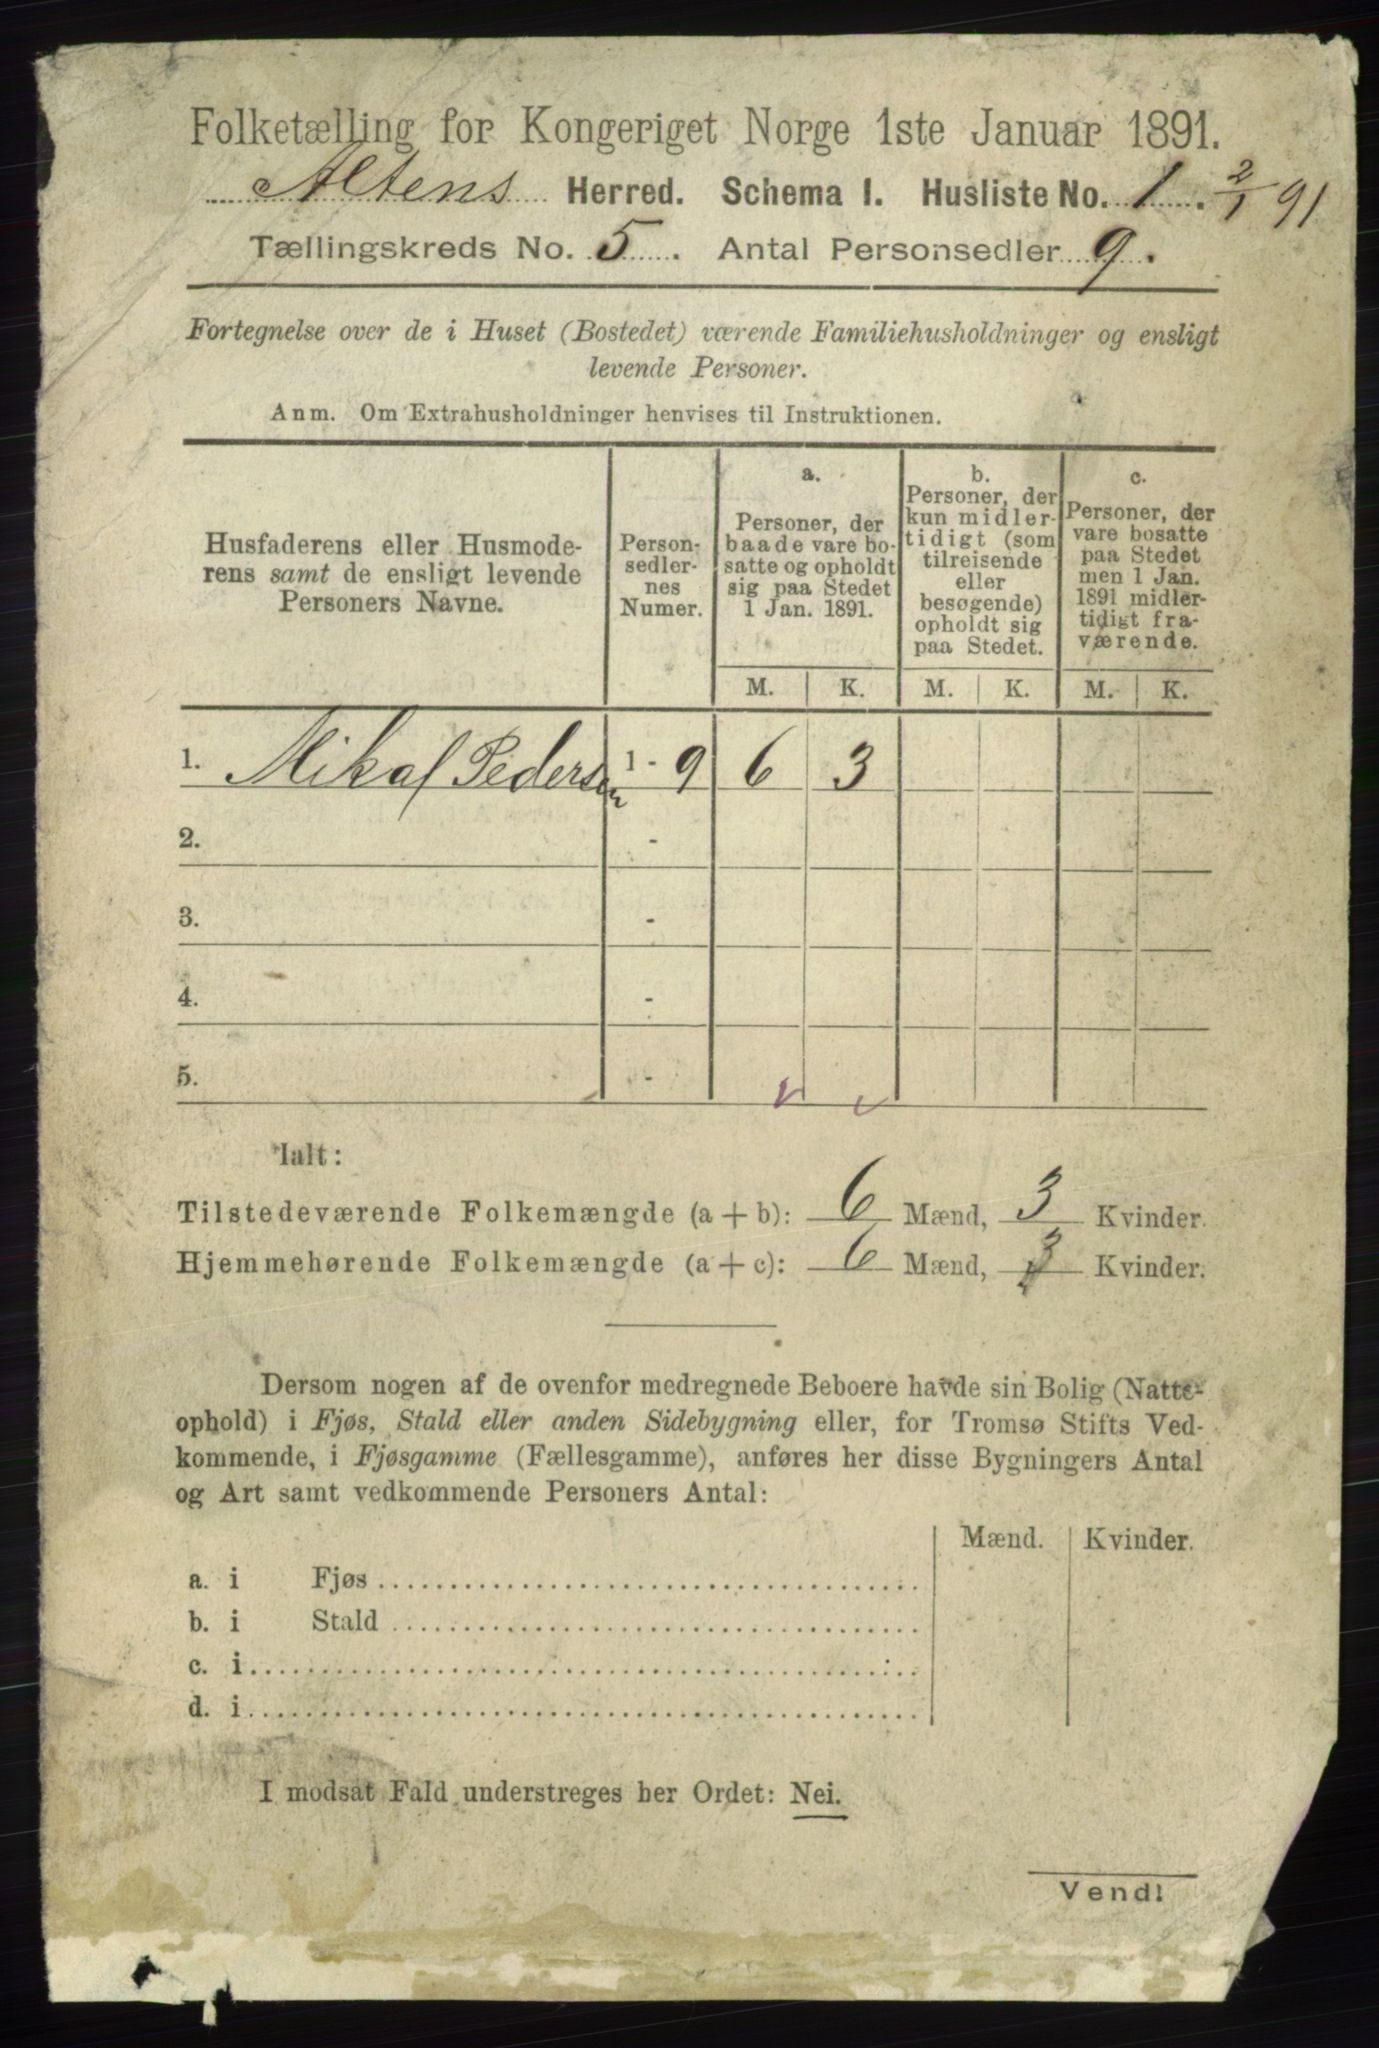 Folketælling for Kongeriget Norge 1ste Januar 1891.
Altens Herred. Schema I. Husliste No. 1. 2/1 91
Tællingskreds No. 5. Antal Personsedler 9.
Fortegnelse over de i Huset (Bostedet) værende Familiehusholdninger og ensligt
levende Personer.
Anm. Om Extrahusholdninger henvises til Instruktionen.
Husfaderens eller Husmode-
rens samt de ensligt levende
Personers Navne.
Person-
sedler-
nes
Numer.
a.
Personer, der
baade vare bo-
satte og opholdt
sig paa Stedet
1 Jan. 1891.
b.
Personer, der
kun midler-
tidigt (som
tilreisende
eller
besøgende)
opholdt sig
paa Stedet.
c.
Personer, der
vare bosatte
paa Stedet
men 1 Jan.
1891 midler-
tidigt fra-
værende.
M. K. M. K. M. K.
1. Mikal Pedersen 1 - 9 6 3
2. -
3. -
4. -
5. -
Ialt:
Tilstedeværende Folkemængde (a + b): 6 Mænd, 3 Kvinder.
Hjemmehørende Folkemængde (a + c): 6 Mænd, 3 Kvinder.
Dersom nogen af de ovenfor medregnede Beboere havde sin Bolig (Natte-
ophold) i Fjøs, Stald eller anden Sidebygning eller, for Tromsø Stifts Ved-
kommende, i Fjøsgamme (Fællesgamme), anføres her disse Bygningers Antal
og Art samt vedkommende Personers Antal:
Mænd. Kvinder.
a. i Fjøs
b. i Stald
c. i
d. i
I modsat Fald understreges her Ordet: Nei.
Vend!